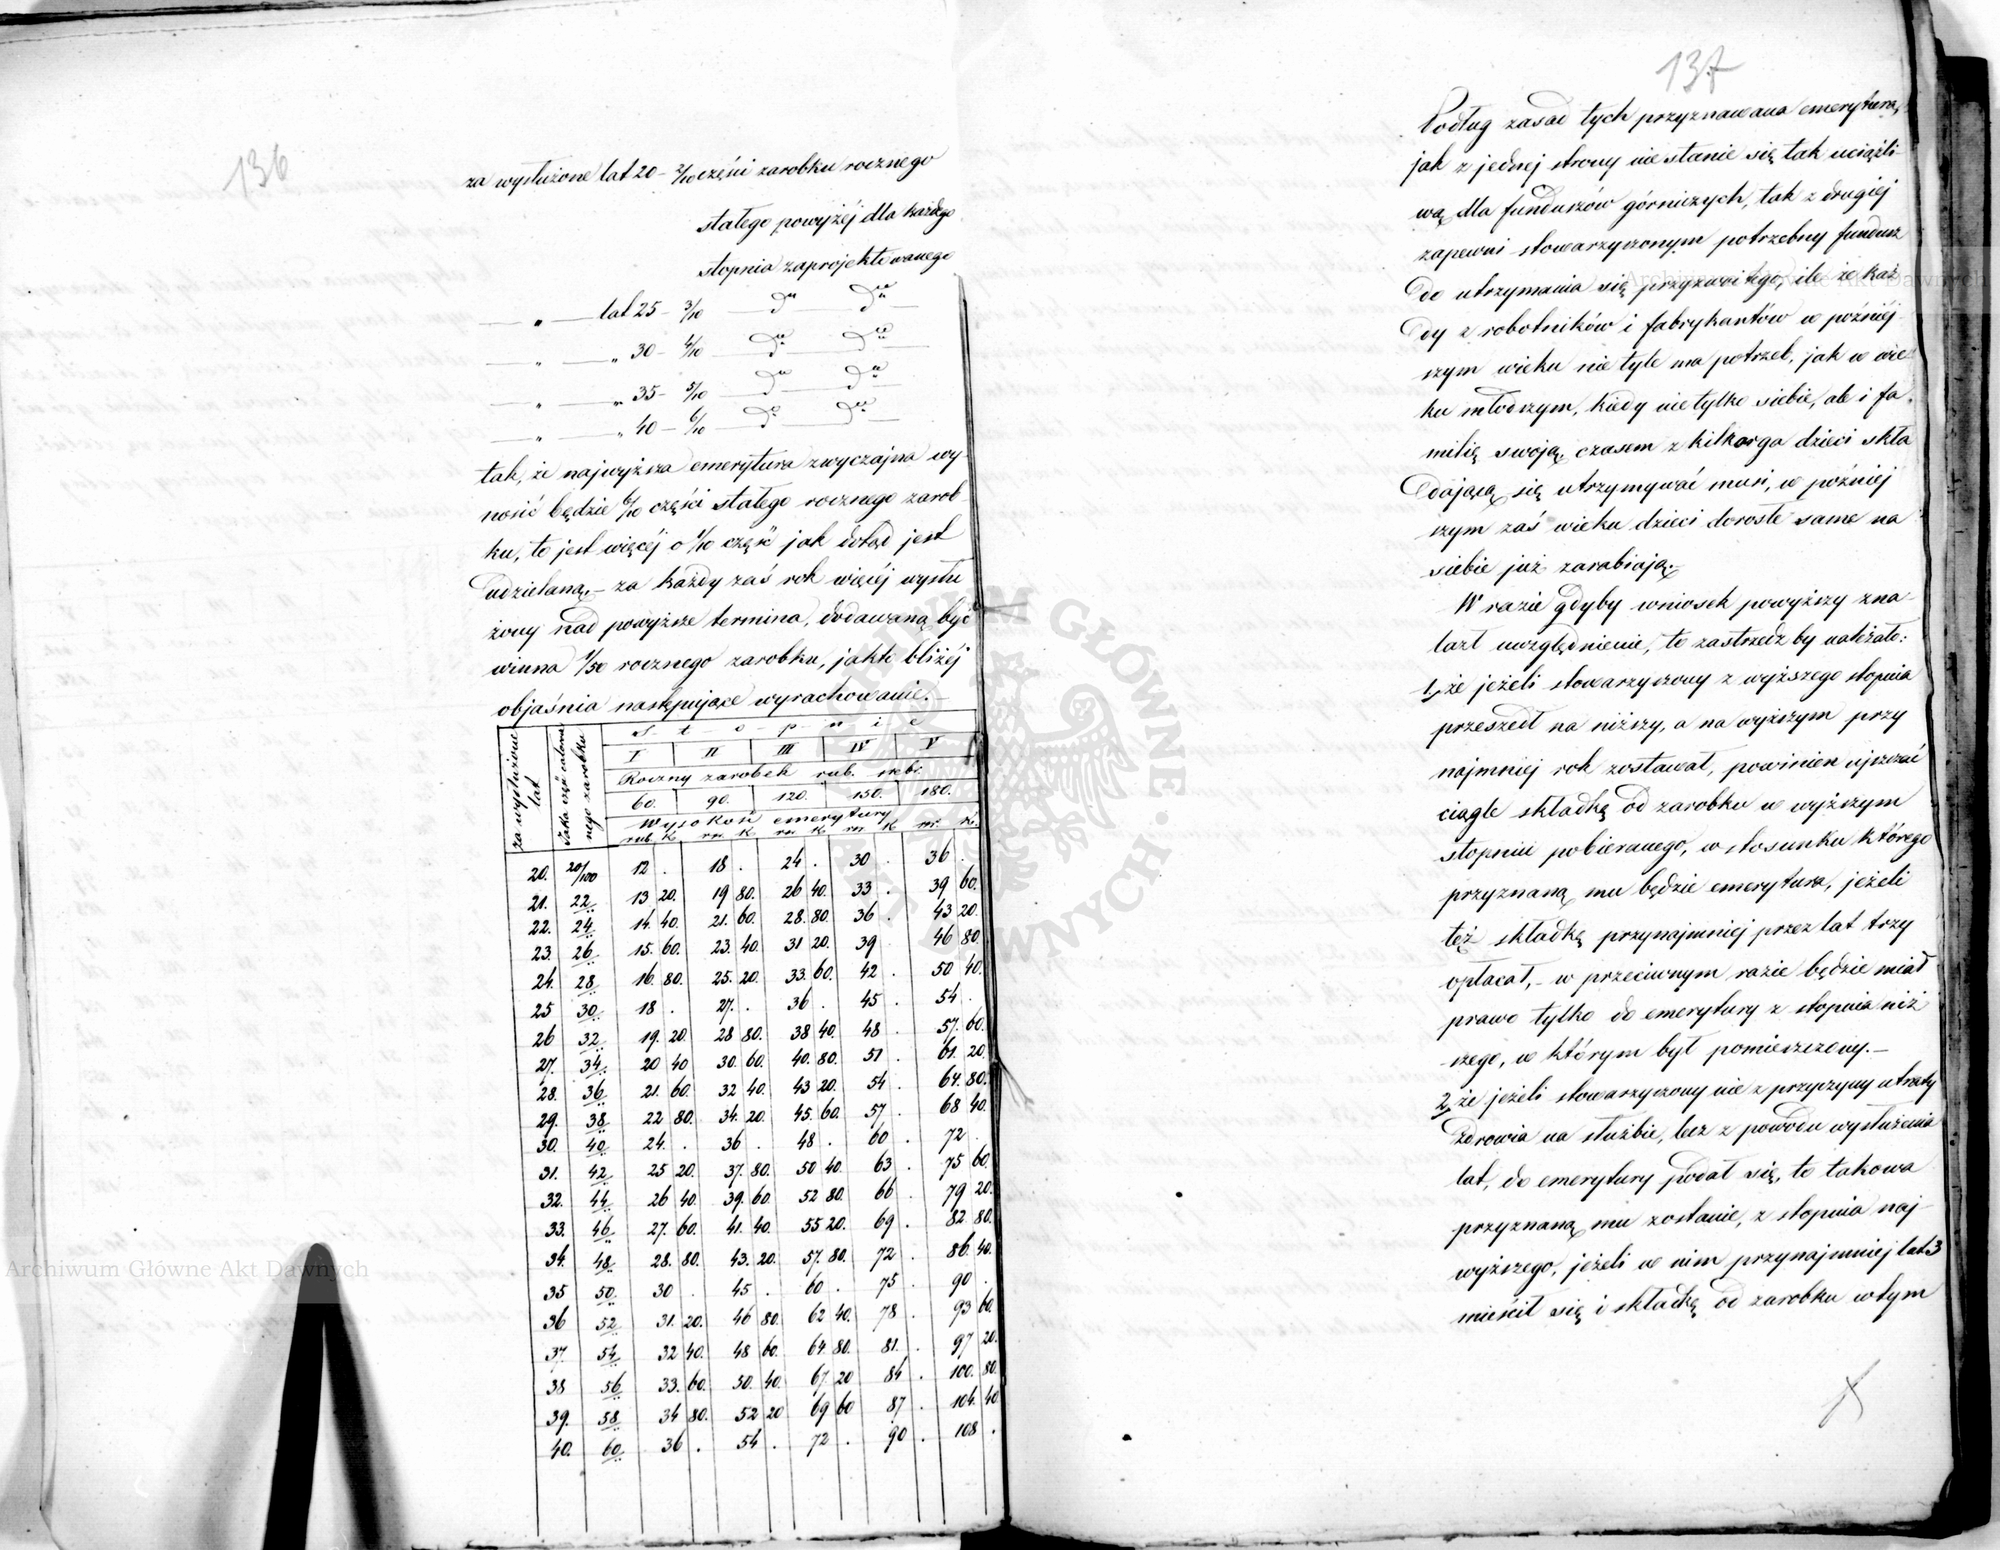 136
za wysłużone lat 20 – 2/10 części zarobku rocznego
stałego powyżéj dla każdego
stopnia zaprojektowanego
— „ — lat 25 – 3/10 — dtt — dtt —
— „ — „ 30 – 4/10 — dtt — dtt —
— „ — „ 35 – 5/10 — dtt — dtt —
— „ — „ 40 – 6/10 — dtt — dtt —
tak, że najwyższa emerytura zwyczajna wy-
nosić będzie 6/10 części stałego rocznego zarob-
ku, to jest więcéj o 1/10 część jak dotąd jest
udzielaną, – za każdy zaś rok więcéj wysłu
żony nad powyższe termina, dodawaną być
winna 1/50 rocznego zarobku, jak to bliżéj
objaśnia następujące wyrachowanie. –
za wysłużenie lat
Jaka część całorocznego zarobku
S t o p n i e
I II III IV V
Roczny zarobek rub. srebr.
60. 90. 120. 150. 180.
Wysokość emerytury
rub. K. rs. K. rs. K. rs. K. rs. K.
20. 20/100 12 . 18 . 24 . 30 . 36 .
21. 22 13 20. 19 80. 26 40. 33 . 39 60.
22. 24 14. 40. 21. 60. 28. 80. 36 . 43 20.
23. 26 15. 60. 23. 40. 31 20. 39 46 80.
24. 28 16. 80. 25. 20. 33. 60. 42 . 50 40.
25 30 18 . 27. . 36 . 45 . 54 .
26 32 19. 20. 28 80. 38 40. 48 . 57. 60.
27. 34 20 40 30. 60. 40. 80. 51 . 61. 20.
28. 36 21. 60. 32 40. 43 20. 54 . 64. 80.
29. 38 22 80. 34. 20. 45. 60. 57 . 68 40.
30. 40 24. . 36 . 48 . 60 . 72 .
31. 42 25 20. 37. 80. 50 40. 63 . 75 60.
32. 44 26 40. 39. 60 52 80. 66 . 79 20.
33. 46 27. 60. 41. 40. 55 20. 69 . 82 80.
34. 48 28. 80. 43. 20. 57. 80. 72 . 86. 40.
35 50 30 . 45 . 60 . 75 . 90 .
36 52 31. 20. 46 80. 62 40. 78 . 93 60.
37. 54 32 40. 48 60. 64. 80. 81. . 97 20.
38 56 33. 60. 50. 40. 67. 20 84 . 100. 80.
39. 58 34 80. 52 20 69 60 87 . 104. 40
40. 60 36 . 54 . 72 . 90 . 108 .
137
Podług zasad tych przyznawana emerytura,
jak z jednej strony nie stanie się tak uciążli-
wą dla funduszów górniczych, tak z drugiej
zapewni stowarzyszonym potrzebny fundusz
do utrzymania się przyzwoitego, ile że każ
dy z robotników i fabrykantów w późniéj
szym wieku nie tyle ma potrzeb, jak w wie-
ku młodszym, kiedy nie tylko siebie, ale i fa-
milię swoją, czasem z kilkorga dzieci skła
dającą się utrzymywać musi, w później
szym zaś wieku dzieci dorosłe same na
siebie już zarabiają.
W razie gdyby wniosek powyższy zna-
lazł uwzględnienie, to zastrzedz by należało:
1, że jeżeli stowarzyszony z wyższego stopnia
przeszedł na niższy, a na wyższym przy
najmniej rok zostawał, powinien uiszczać
ciągle składkę od zarobku w wyższym
stopniu pobieranego, w stosunku którego
przyznaną mu będzie emerytura, jeżeli
też składkę przynajmniej przez lat trzy
opłacał, – w przeciwnym razie będzie miał
prawo tylko do emerytury z stopnia niż
szego, w którym był pomieszczony. –
2, że jeżeli stowarzyszony nie z przyczyny utraty
zdrowia na służbie, lecz z powodu wysłużenia
lat, do emerytury podał się, to takowa
przyznaną mu zostanie, z stopnia naj-
wyższego, jeżeli w nim przynajmniej lat 3
mieścił się i składkę od zarobku w tym
Archiwum Główne Akt Dawnych
Archiwum Główne Akt Dawnych